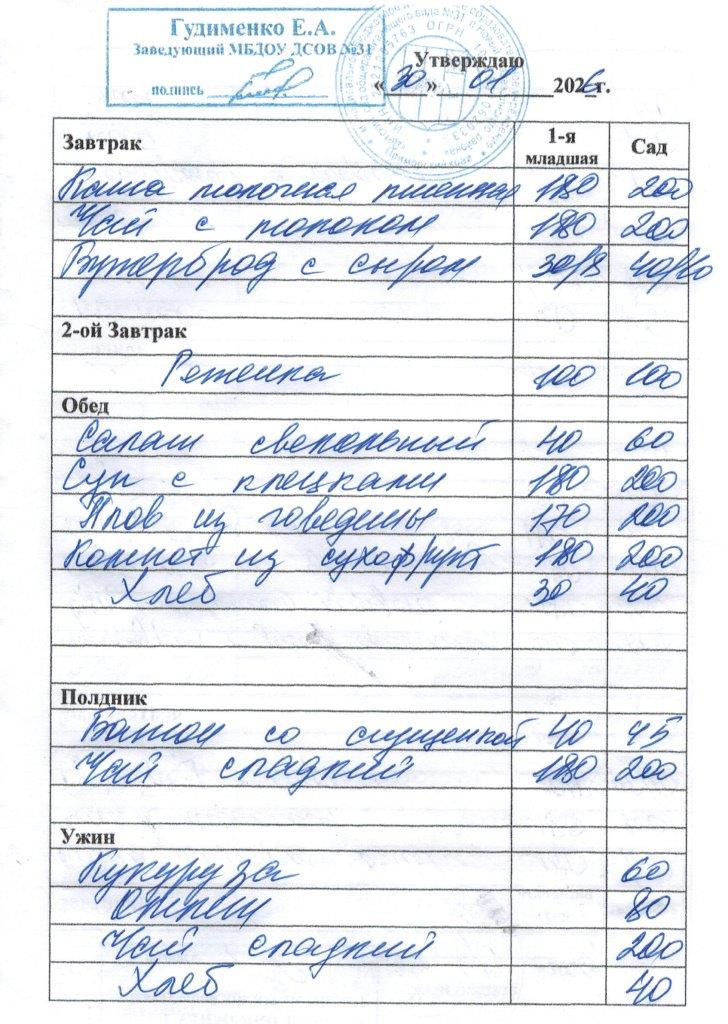 Гудименко Е.А.
Заведующий МБДОУ ДСОВ №31
подпись
Утверждаю
«30» 01 2026г.
Завтрак 1-я младшая Сад
Каша молочная пшенная 180 200
Чай с молоком 180 200
Бутерброд с сыром 30/8 40/10
2-ой Завтрак
Ряженка 100 100
Обед
Салат свекольный 40 60
Суп с клецками 180 200
Плов из говедины 170 200
Компот из сухофрукт 180 200
Хлеб 30 40
Полдник
Батон со сгущенкой 40 45
Чай сладкий 180 200
Ужин
Кукуруза 60
Омлет 80
Чай сладкий 200
Хлеб 40